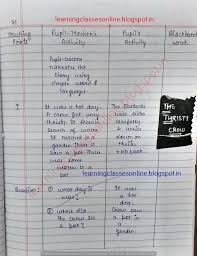 learningclassesonline.blogspot.in
Teaching Points
Pupil-Teacher's Activity
Pupil's Activity
Blackboard Work
Pupil-teacher
narrates the
story using
simple
language:
I
It was a hot day.
A crow felt very
thirsty. It
search of water.
garden. There it
saw a pot. There
was some
water in a
pot.
The Students
listen
carefully
& write
down in
their
notebook.
THE
THIRSTY
CROW
learningclassesonline.blogspot.in
Question:
① What day is
was?
It was
a hot
day.
② Where did
the crow see
a pot?
Crow saw
a pot in
a
garden.
learningclassesonline.blogspot.in